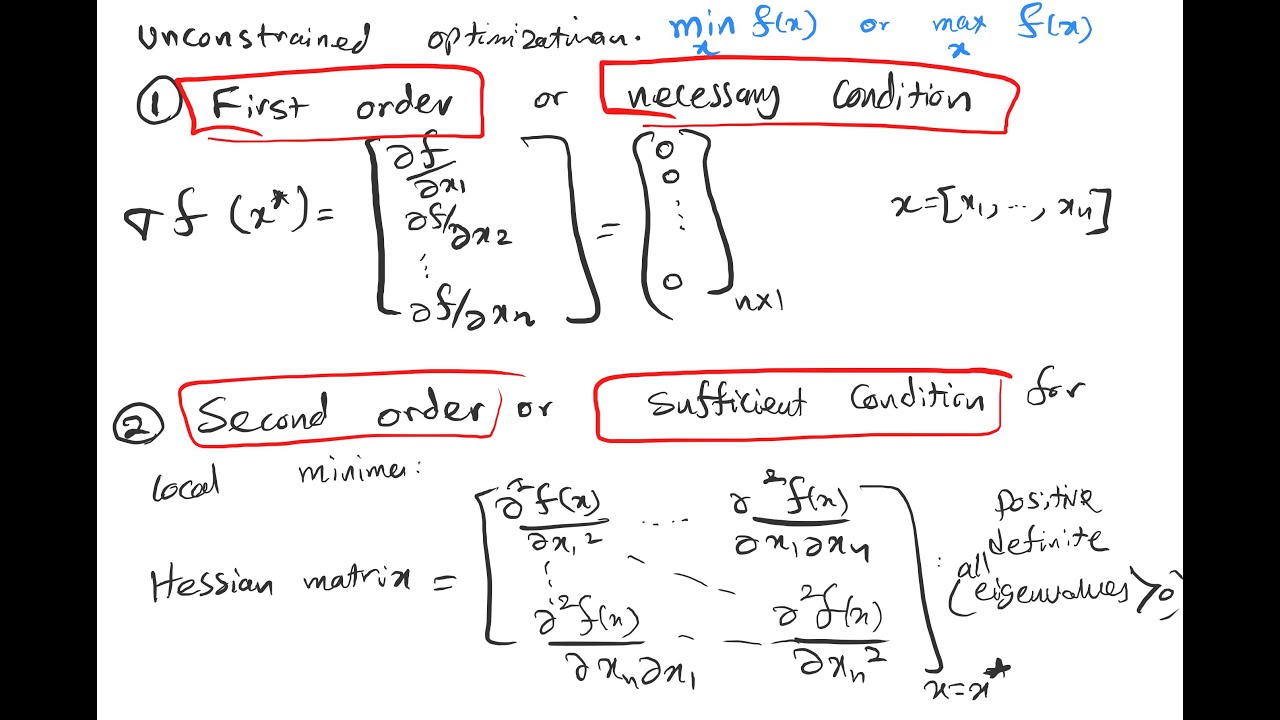 Unconstrained optimization. min f(x) or max f(x)
x x
① First order or necessary condition
∇f (x*) = [∂f/∂x1 ∂f/∂x2 ⋮ ∂f/∂xn] = [0 0 ⋮ 0] n×1 x=[x1, ..., xn]
② Second order or Sufficient Condition for
local minima:
Hessian matrix = [∂²f(x)/∂x1² .... ∂²f(x)/∂x1∂xn ⋮ ∂²f(x)/∂xn∂x1 - - ∂²f(x)/∂xn²] x=x* : positive definite (all eigenvalues >0)